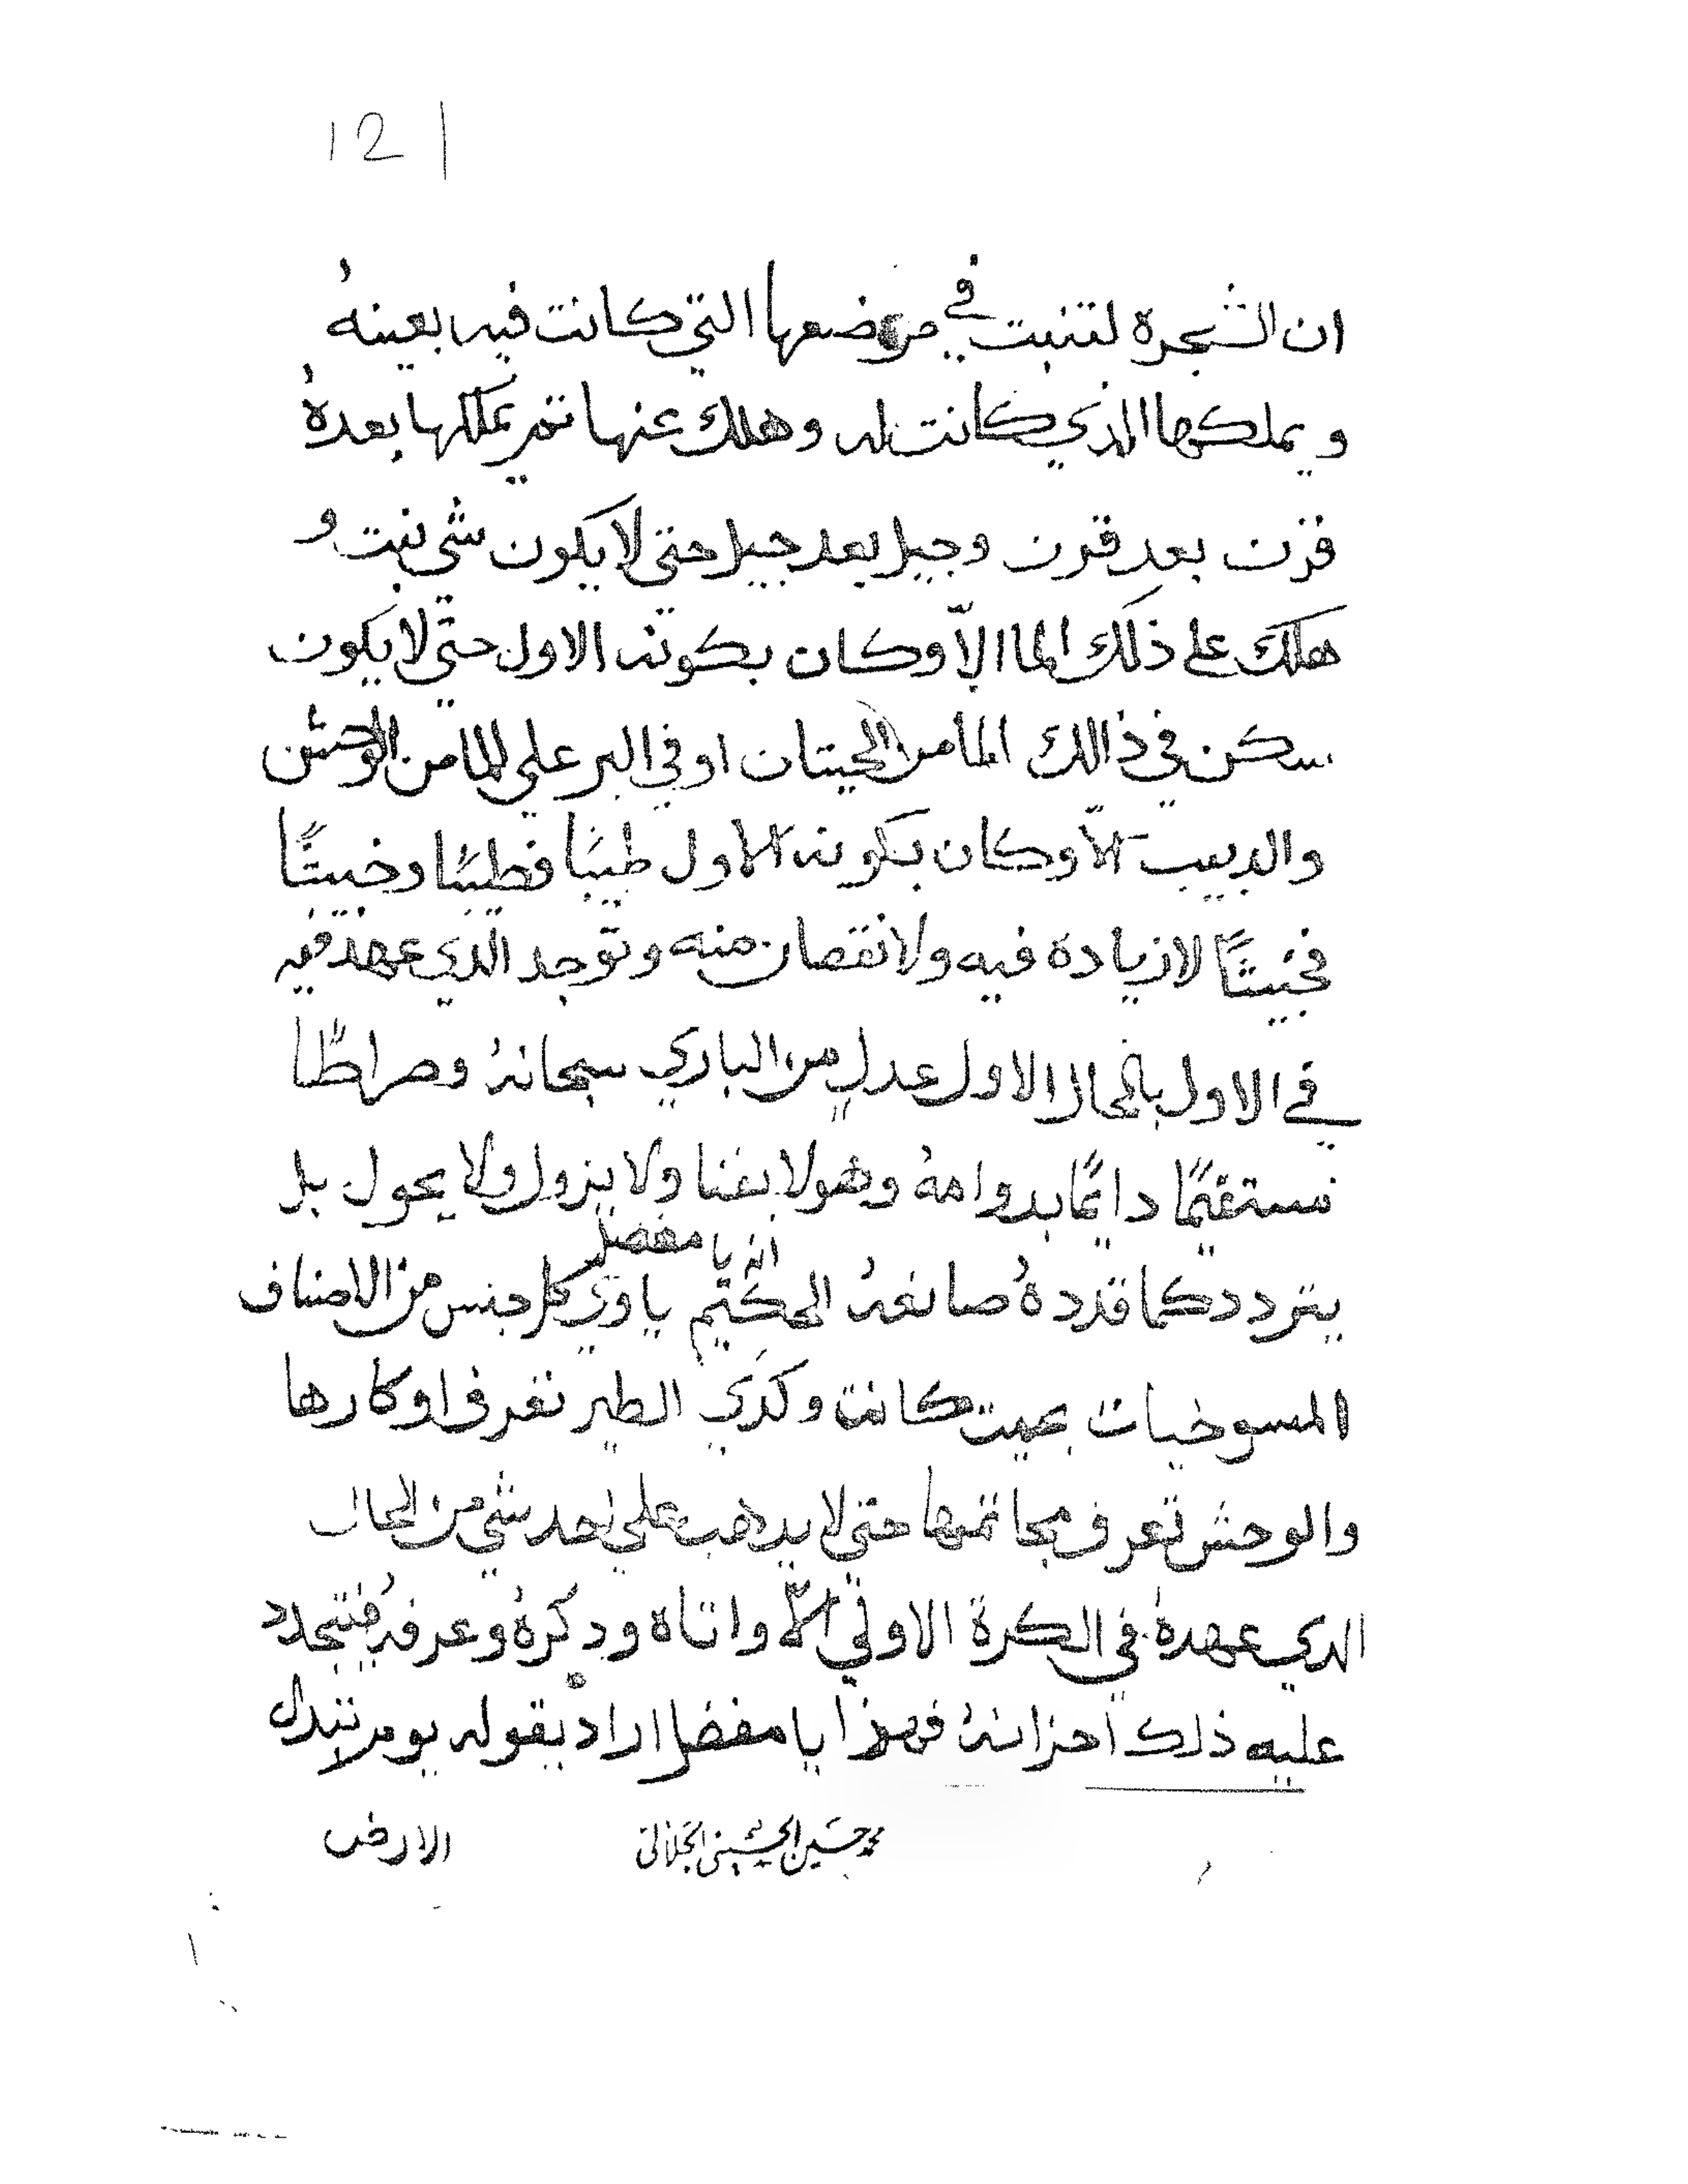 12
ان الشجرة لتنبت في موضعها التي كانت فيه بعينهُ
ويملكها الذي كانت له وهلك عنها ثم يملكها بعدهُ
قرن بعد قرن وجيل بعد جيل حتى لا يكون شي نبت و
هلك على ذلك الما الاّ وكان بكونه الاول حتي لا يكون
سكن في ذالك الما من الحيتان او في البر علي الما من الوحش
والدبيب الاّ وكان بكونه الاول طيبًا فطيبًا وخبيثًا
فخبيثًا لا زيادة فيه ولا نقصان منه وتوجد الذي عهد فيه
في الاول بالحال الاول عدلٍ من الباري سبحانهُ وصراطًا
مستقيمًا دايمًا بدوامهُ وهو لا يفنا ولا يزول ولا يحول بل
يتردد كما قدرهُ صانعهُ الحكيم ياوي كل جنس من الاصناف
انه يا مفضل
المسوخيات بحيت كانت وكذي الطير تعرف اوكارها
والوحش تعرف مجاثمها حتي لا يدهب علي احد شي من الحال
الدي عهدهُ في الكرة الاولي الاّ واتاه ودكرهُ وعرفهُ فتتجدد
عليه ذلك احزانهُ فهذا يا مفضل اراد بقوله يوم تبدل
الارض
محمد حسين الحسيني الجلالي